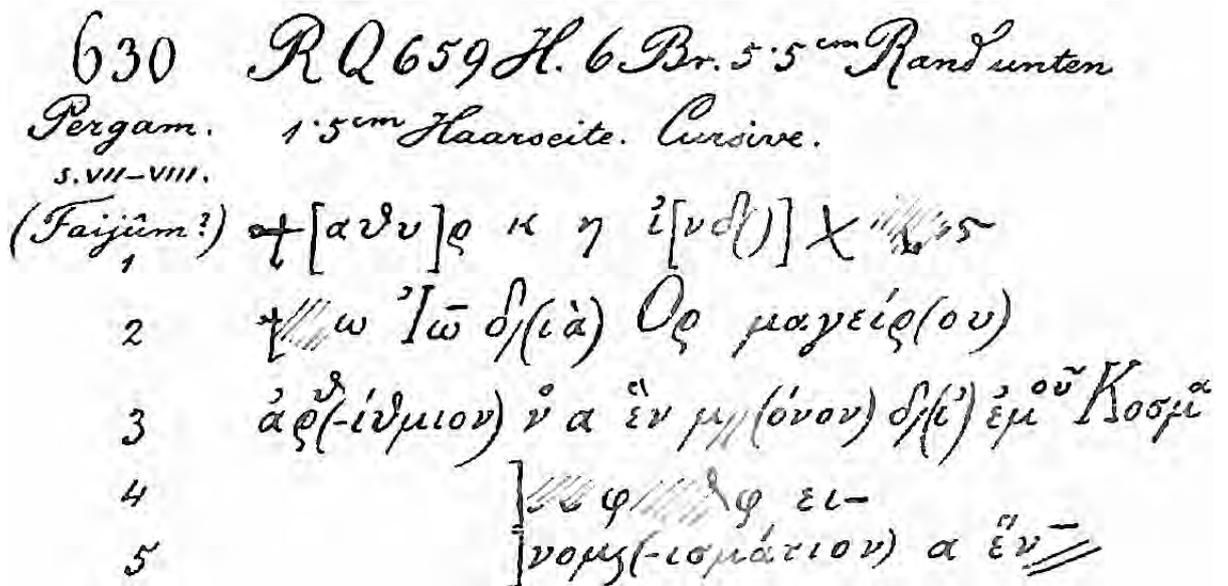 630 RQ 659 H. 6 Br. 5·5 cm Rand unten
Pergam. 1·5 cm Haarseite. Cursive.
s. VII–VIII.
(Faijûm?) +[αθυ]ρ κ η ἰ[νδ()] χ
1
2 + ω Ἰω̄ δ/(ιὰ) Ορ μαγείρ(ου)
3 ἀρ̆θ(-ίθμιον) ν̓ α ἓν μ//(όνον) δ/(ι') ἐμοῦ Κοσμᾶ
4 ] φ φ ει–
5 ]νομς(-ισμάτιον) α ἕν